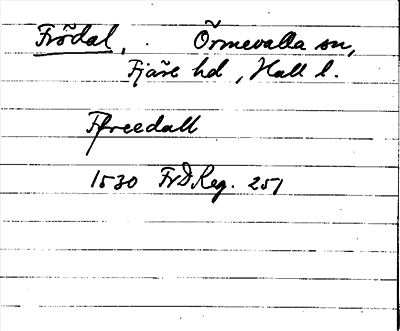 Frödal, Örmevalla sn,
Fjäre hd, Hall l.
Ffreedall
1530 FrDReg. 251